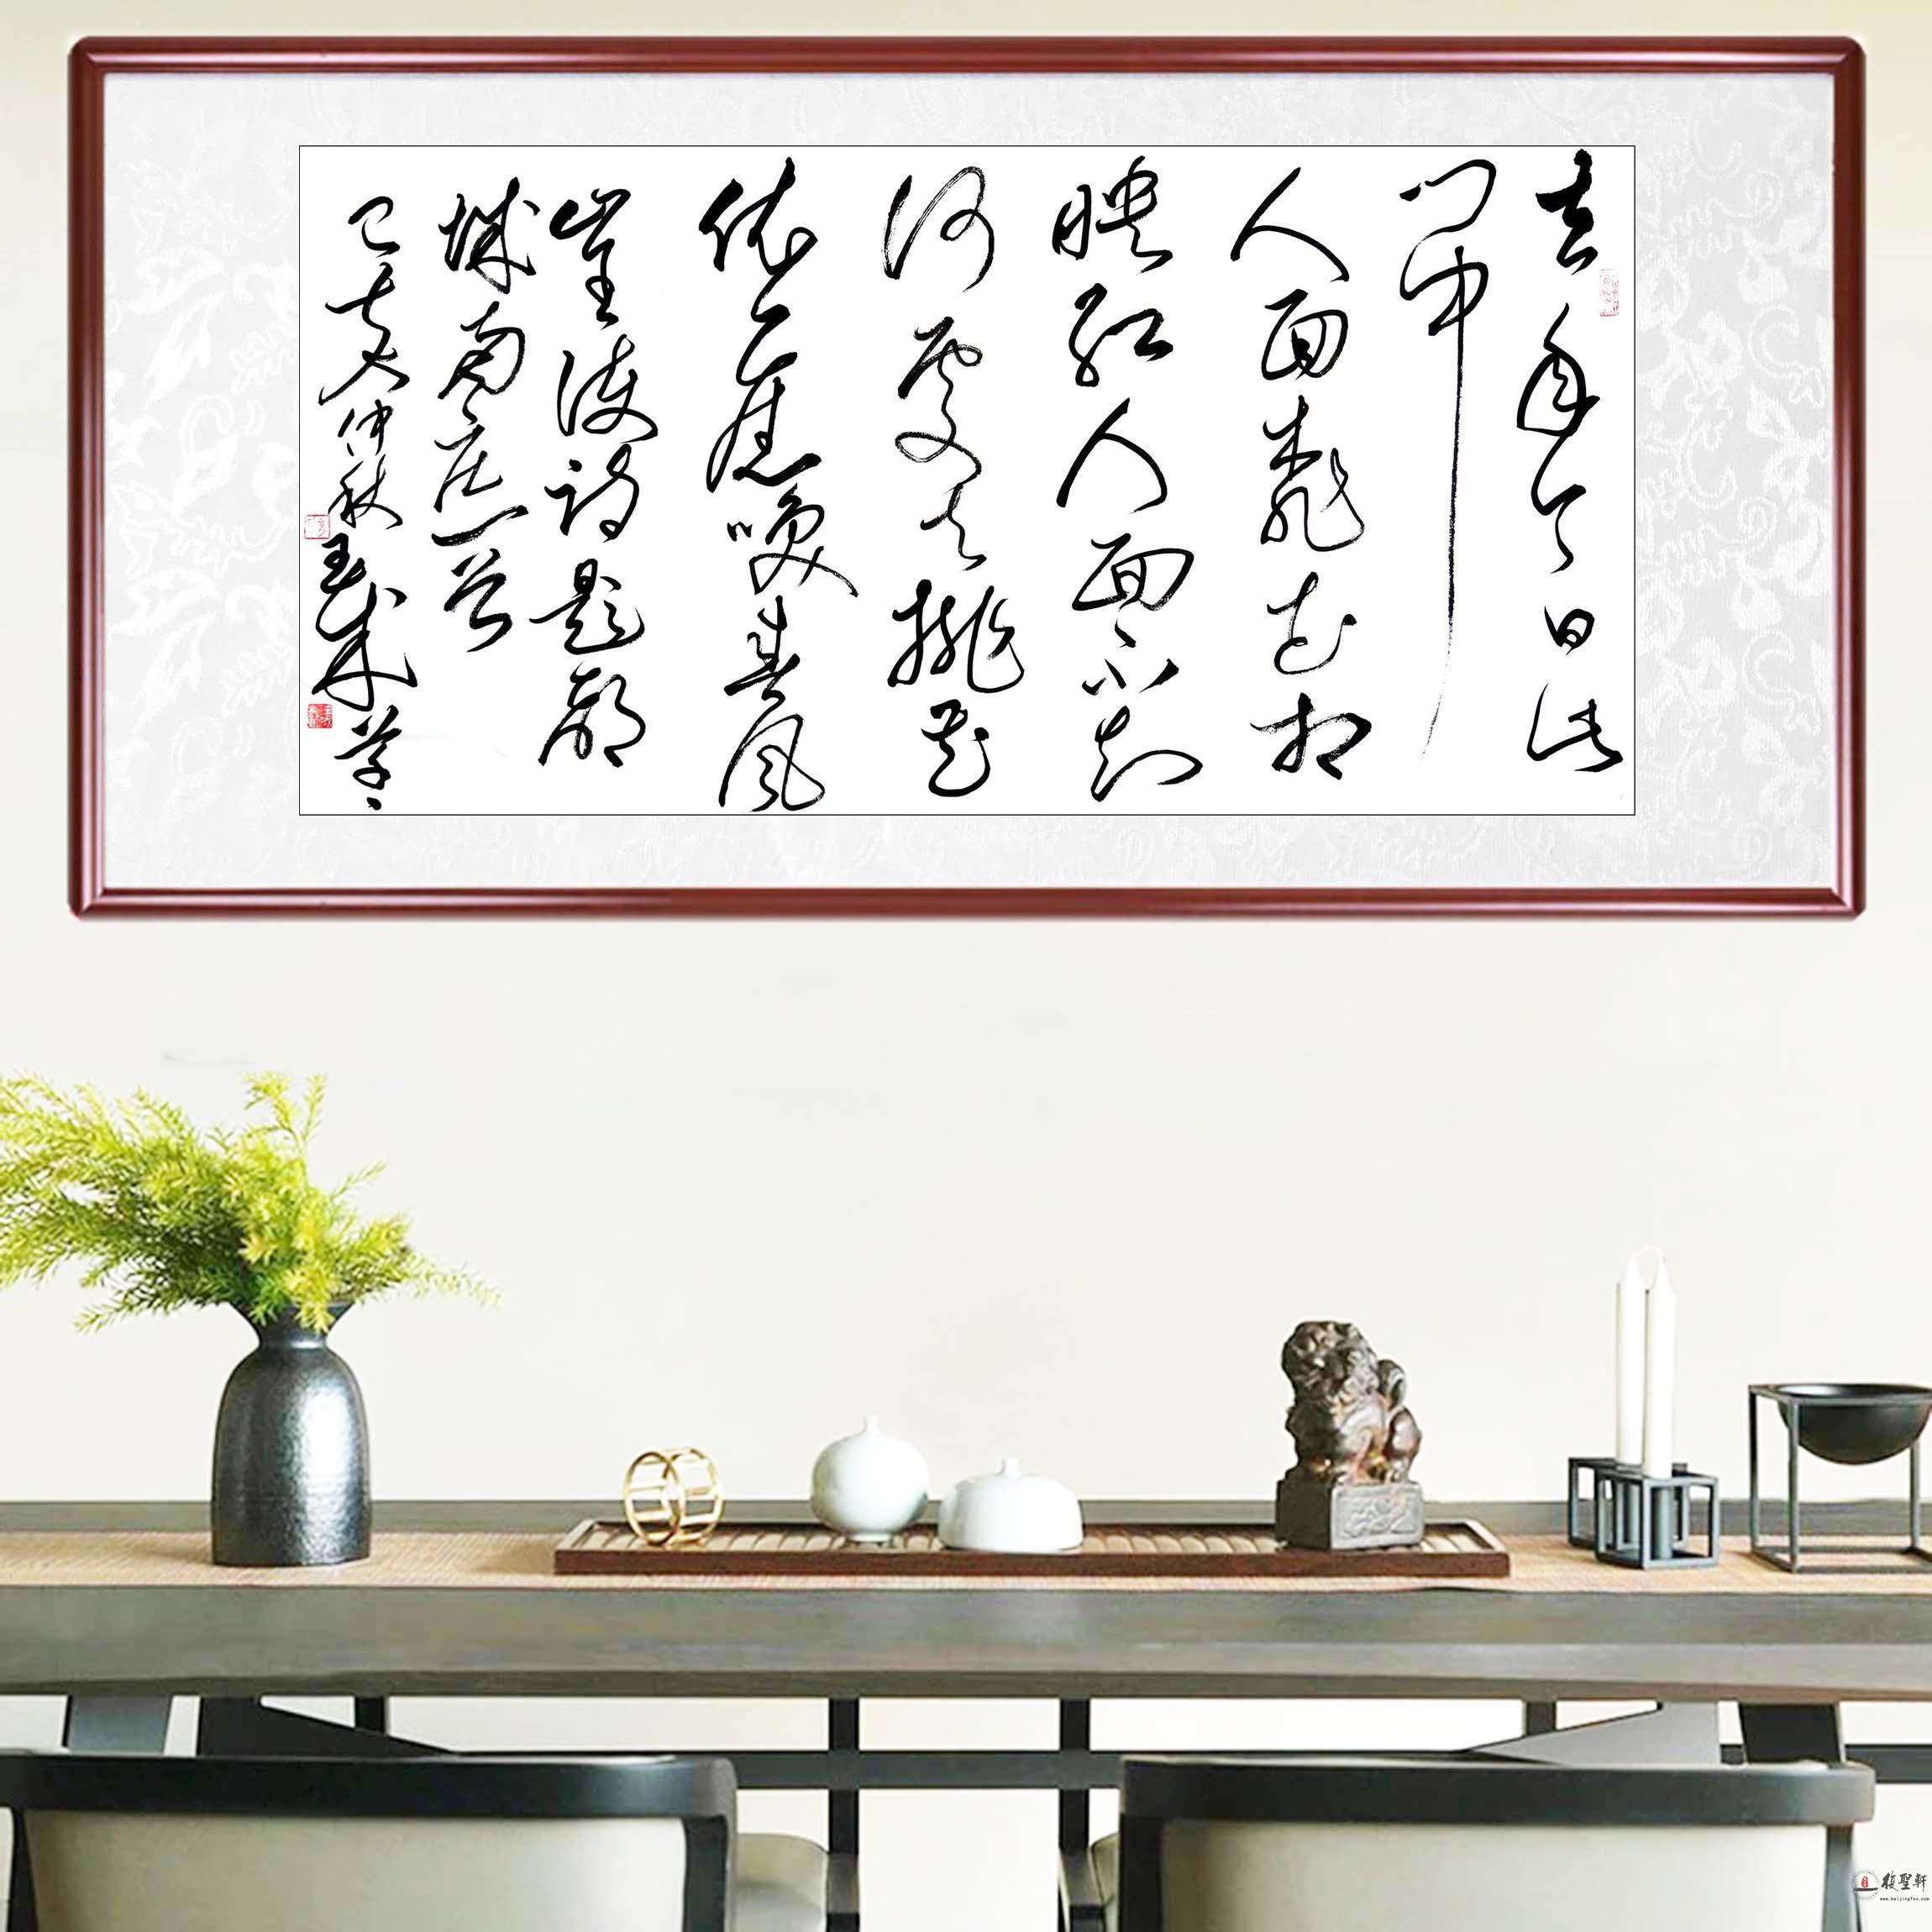 去年今日此
门中
人面桃花相
映红人面不知
何处去桃花
依舊笑春风
崔护诗题都
城南庄一首
己亥仲秋
復聖軒
www.beijingfsx.com